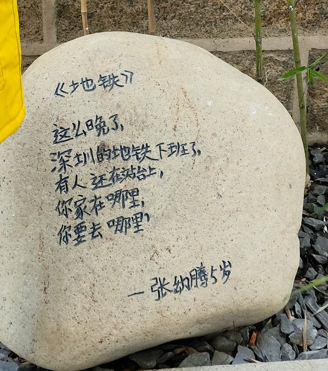 《地铁》
这么晚了,
深圳的地铁下班了,
有人还在站台上,
你家在哪里,
你要去哪里
—张纳腾5岁